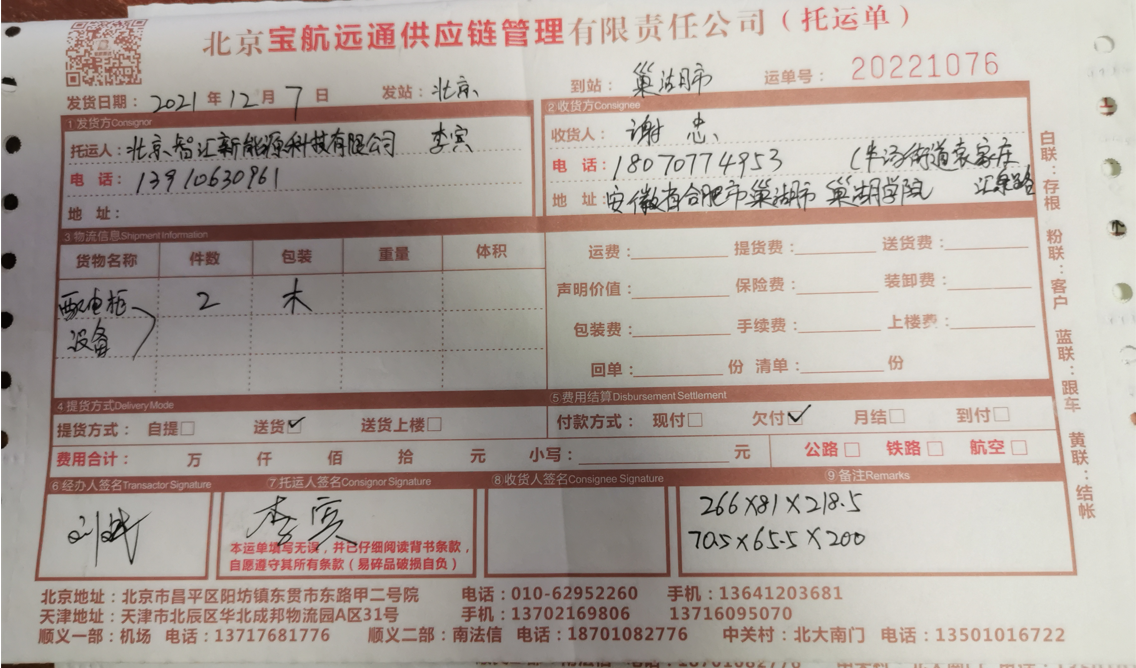 北京宝航远通供应链管理有限责任公司（托运单）
发货日期：2021年12月7日 发站：北京 到站：巢湖市 运单号：20221076
1 发货方Consignor
托运人：北京智汇新能源科技有限公司 李宾
电 话：13910630961
地 址：
2 收货方Consignee
收货人：谢忠
电 话：18070774953 (半汤街道袁家庄
地 址：安徽省合肥市巢湖市 巢湖学院
3 物流信息Shipment Information
货物名称 件数 包装 重量 体积
配电柜 2 木
设备
运费： 提货费： 送货费：
声明价值： 保险费： 装卸费：
包装费： 手续费： 上楼费：
回单： 份 清单： 份
4 提货方式Delivery Mode
提货方式： 自提□ 送货☑ 送货上楼□
⑤费用结算Disbursement Settlement
付款方式： 现付□ 欠付☑ 月结□ 到付□
费用合计： 万 仟 佰 拾 元 小写： 元 公路□ 铁路□ 航空□
⑥经办人签名Transactor Signature
刘斌
⑦托运人签名Consignor Signature
李宾
本运单填写无误，并已仔细阅读背书条款，
自愿遵守其所有条款（易碎品破损自负）
⑧收货人签名Consignee Signature
⑨备注Remarks
266×81×218.5
70.5×65.5×200
白联：存根 粉联：客户 蓝联：跟车 黄联：结帐
北京地址：北京市昌平区阳坊镇东贯市东路甲二号院 电话：010-62952260 手机：13641203681
天津地址：天津市北辰区华北成邦物流园A区31号 手机：13702169806 13716095070
顺义一部：机场 电话：13717681776 顺义二部：南法信 电话：18701082776 中关村：北大南门 电话：13501016722